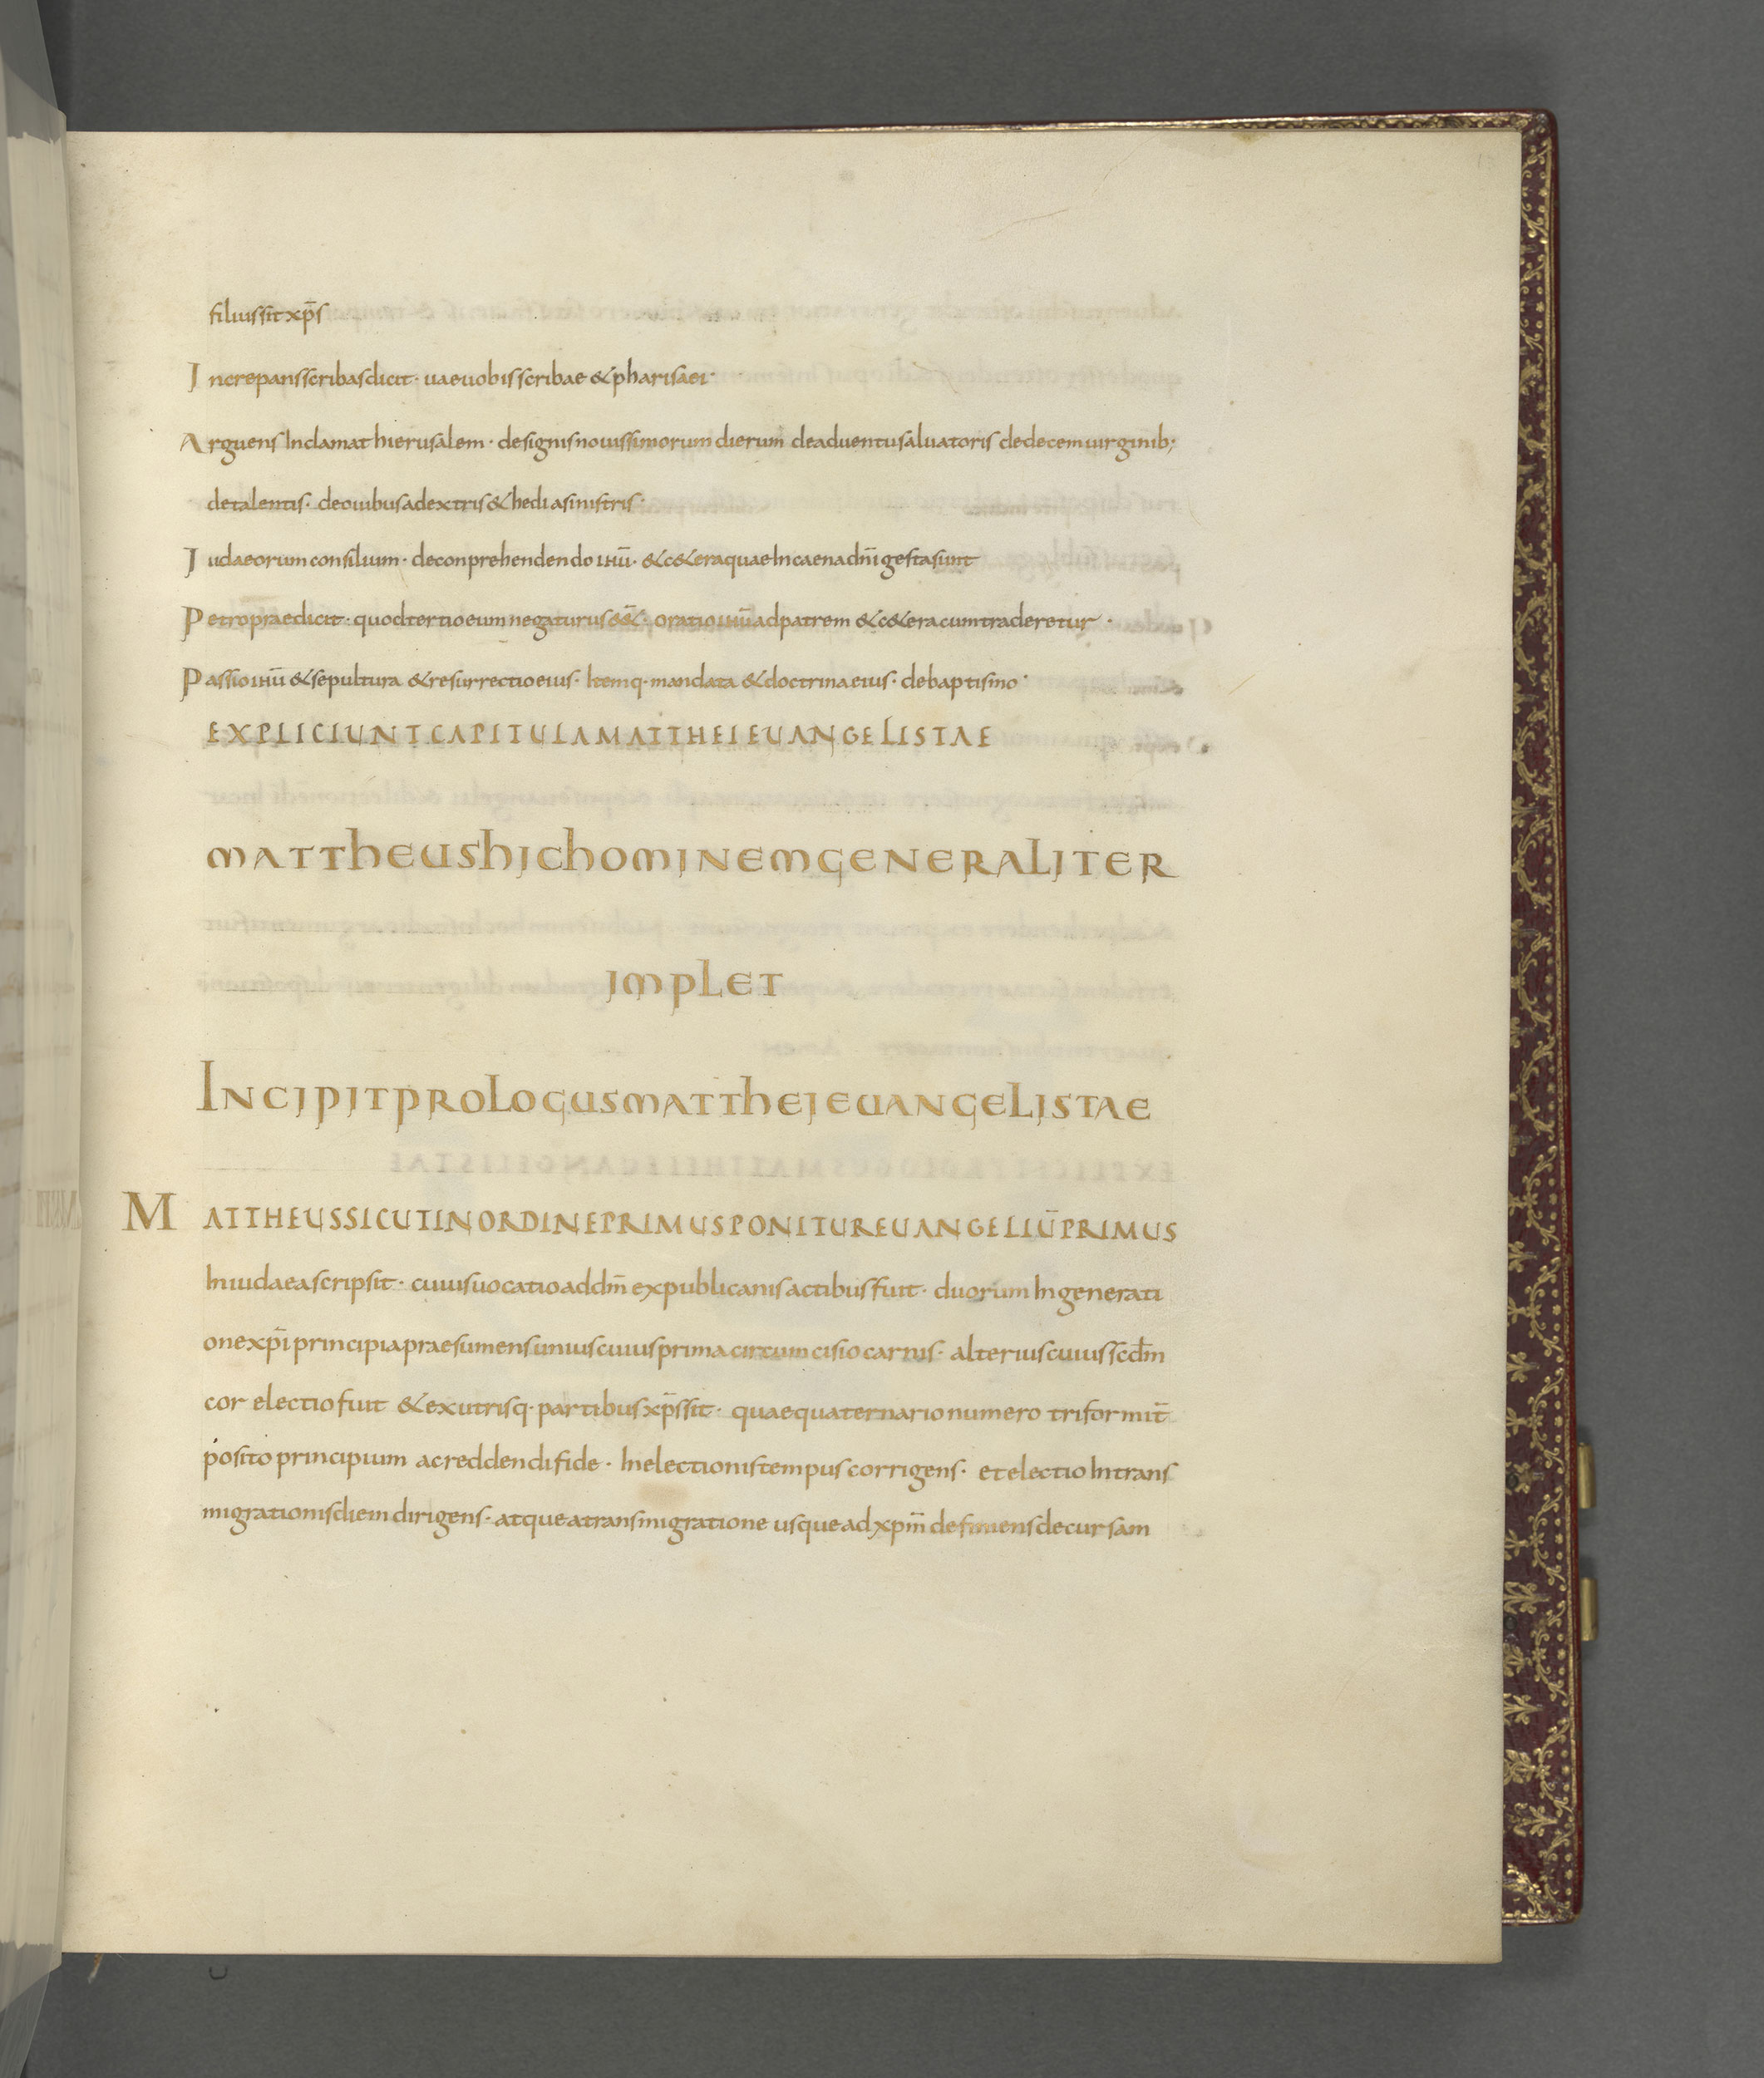 filius sit xp̄s
Increpans scribas dicit · uae uobis scribae & pharisaei ·
Arguens Inclamat hierusalem · de signis nouissimorum dierum de aduentu saluatoris de decem uirginib;
de talentis · de ouibus a dextris & hedi a sinistris ·
Iudaeorum consilium · de conprehendendo ihū · & c&era quae In caena dn̄i gesta sunt
Petro praedicit · quod tertio eum negaturus e&̄ · oratio ihū ad patrem & c&era cum traderetur ·
Passio ihū & sepultura & resurrectio eius · Itemq · mandata & doctrina eius · de baptismo ·
EXPLICIUNT CAPITULA MATTHEI EUANGELISTAE
MATTHEUS HIC HOMINEM GENERALITER
IMPLET
INCIPIT PROLOGUS MATTHEI EUANGELISTAE
MATTHEUS SICUT IN ORDINE PRIMUS PONITUR EUANGELIŪ PRIMUS
In iudaea scripsit · cuius uocatio ad dn̄m ex publicanis actibus fuit · duorum In generati
one xp̄i principia praesumens unius cuius prima circumcisio carnis · alterius cuius scd̄m
cor electio fuit & ex utrisq · partibus xp̄s sit · quae quaternario numero triformit̄
posito principium a creddendi fide · In electionis tempus corrigens · et electio In trans
migrationis diem dirigens · atque a transmigratione usque ad xpm̄ definiens decursam